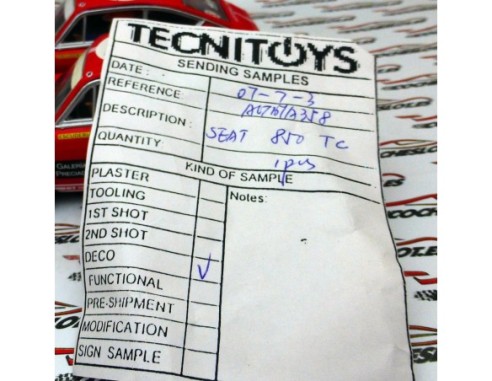 TECNITOYS
SENDING SAMPLES
DATE: 07-7-3
REFERENCE:
DESCRIPTION: SEAT 850 TC
QUANTITY: 1 pcs
KIND OF SAMPLE
PLASTER
Notes:
TOOLING
1ST SHOT
2ND SHOT
DECO ✓
FUNCTIONAL
PRE-SHIPMENT
MODIFICATION
SIGN SAMPLE
GALERIAS